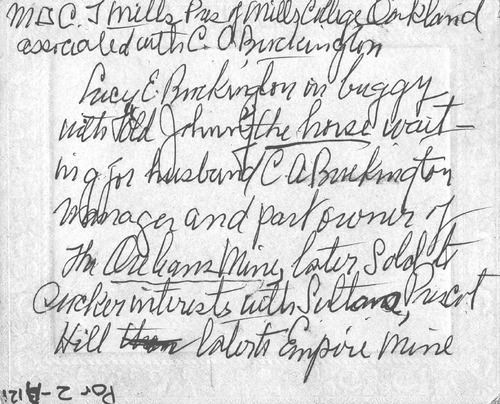 Mrs C. T Mills, Pres of Mills College, Oakland
associated with C. A Brockington
Lucy E Brockington in buggy
with "Old Johnny" the horse wait-
ing for husband C A Brockington
manager and part owner of
the Orleans Mine, later Sold to
interests with Sultana, Prescot
Hill later to Empire Mine
Por 2-A121